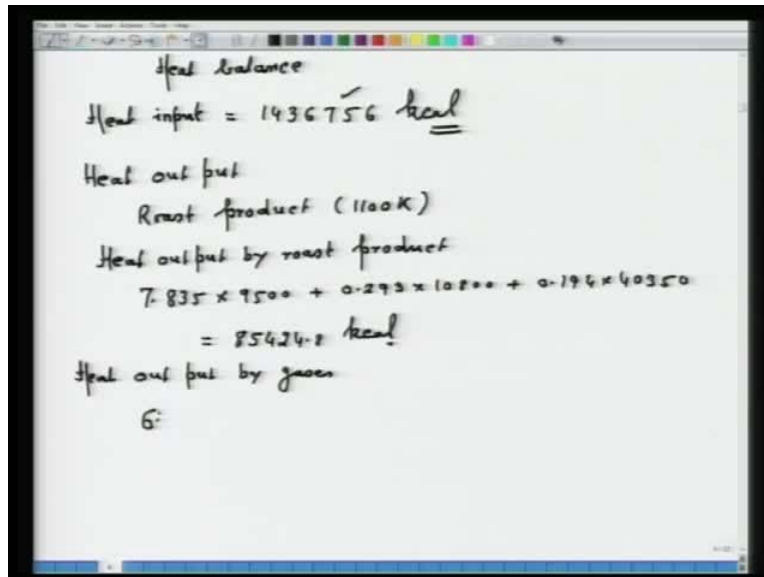 Heat balance
Heat input = 1436756 kcal
Heat out put
Roast product (1100K)
Heat output by roast product
7.835 x 9500 + 0.293 x 10800 + 0.194 x 40350
= 85424.8 kcal
Heat out put by gases
6.